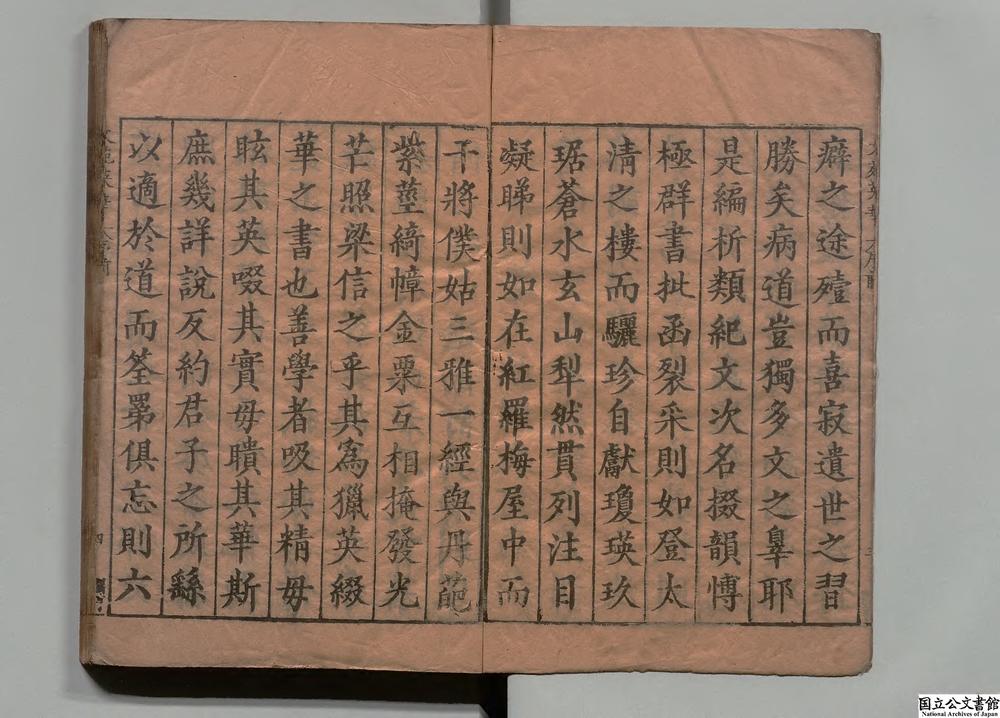 癖之途殪而喜寂遺世之習
勝矣病道豈獨多文之辠耶
是編析類紀文次名掇韻愽
極群書批函裂采則如登太
清之樓而驪珍自獻瓊瑛玖
琚蒼水玄山犁然貫列注目
凝睇則如在紅羅梅屋中而
干將僕姑三雅一經與丹葩
紫蘁綺幛金粟互相掩發光
芒照梁信之乎其為獵英綴
華之書也善學者吸其精毋
眩其英啜其實毋瞶其華斯
庶幾詳說反約君子之所繇
以適於道而筌罤俱忘則六
四
国立公文書館
National Archives of Japan